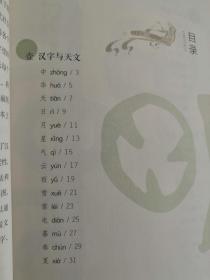 目录
壹 汉字与天文
中 zhōng / 3
华 huá / 5
天 tiān / 7
日 rì / 9
月 yuè / 11
星 xīng / 13
气 qì / 15
云 yún / 17
雨 yǔ / 19
雪 xuě / 21
雷 léi / 23
电 diàn / 25
暮 mù / 27
春 chūn / 29
夏 xià / 31